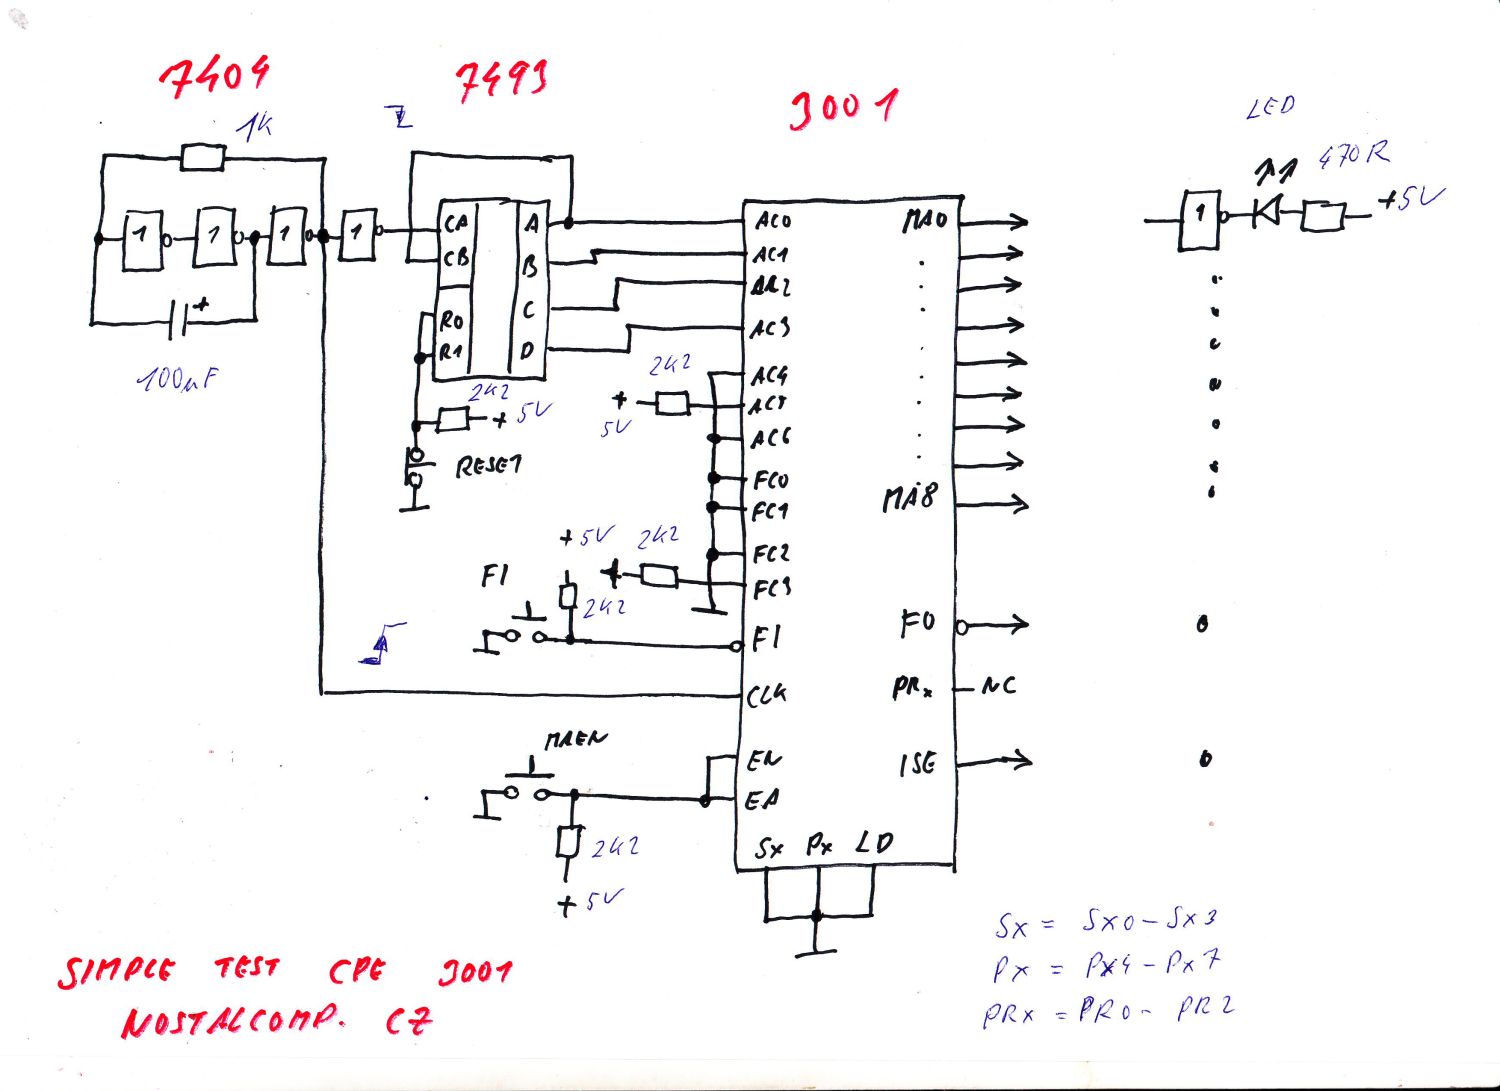 7404
7493
3001
LED
1K
470R
+5V
1
1
1
1
1
CA
CB
R0
R1
A
B
C
D
AC0
AC1
AC2
AC3
AC4
AC5
AC6
FC0
FC1
FC2
FC3
FI
CLK
EN
EA
MA0
MA8
FO
PRx
NC
ISE
Sx Px LD
+
100µF
2K2
+ 5V
RESET
2K2
+
5V
+5V
2K2
FI
2K2
MAEN
2K2
+ 5V
Sx = Sx0 - Sx3
Px = Px4 - Px7
PRx = PR0 - PR2
SIMPLE TEST CPE 3001
NOSTALCOMP. CZ